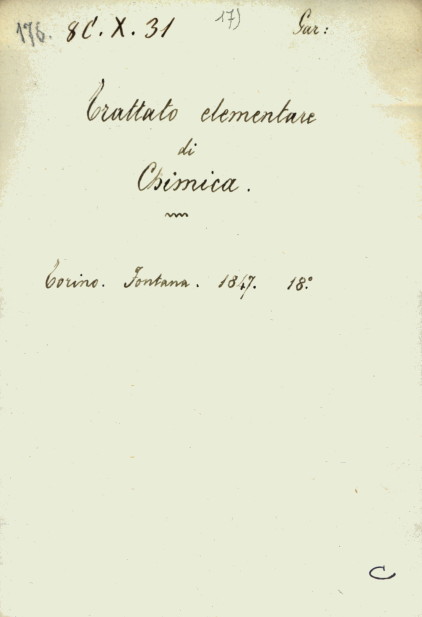 176. 8C. X. 31 17) Gar:
Trattato elementare
di
Chimica.
Torino. Fontana. 1847. 18.º
C